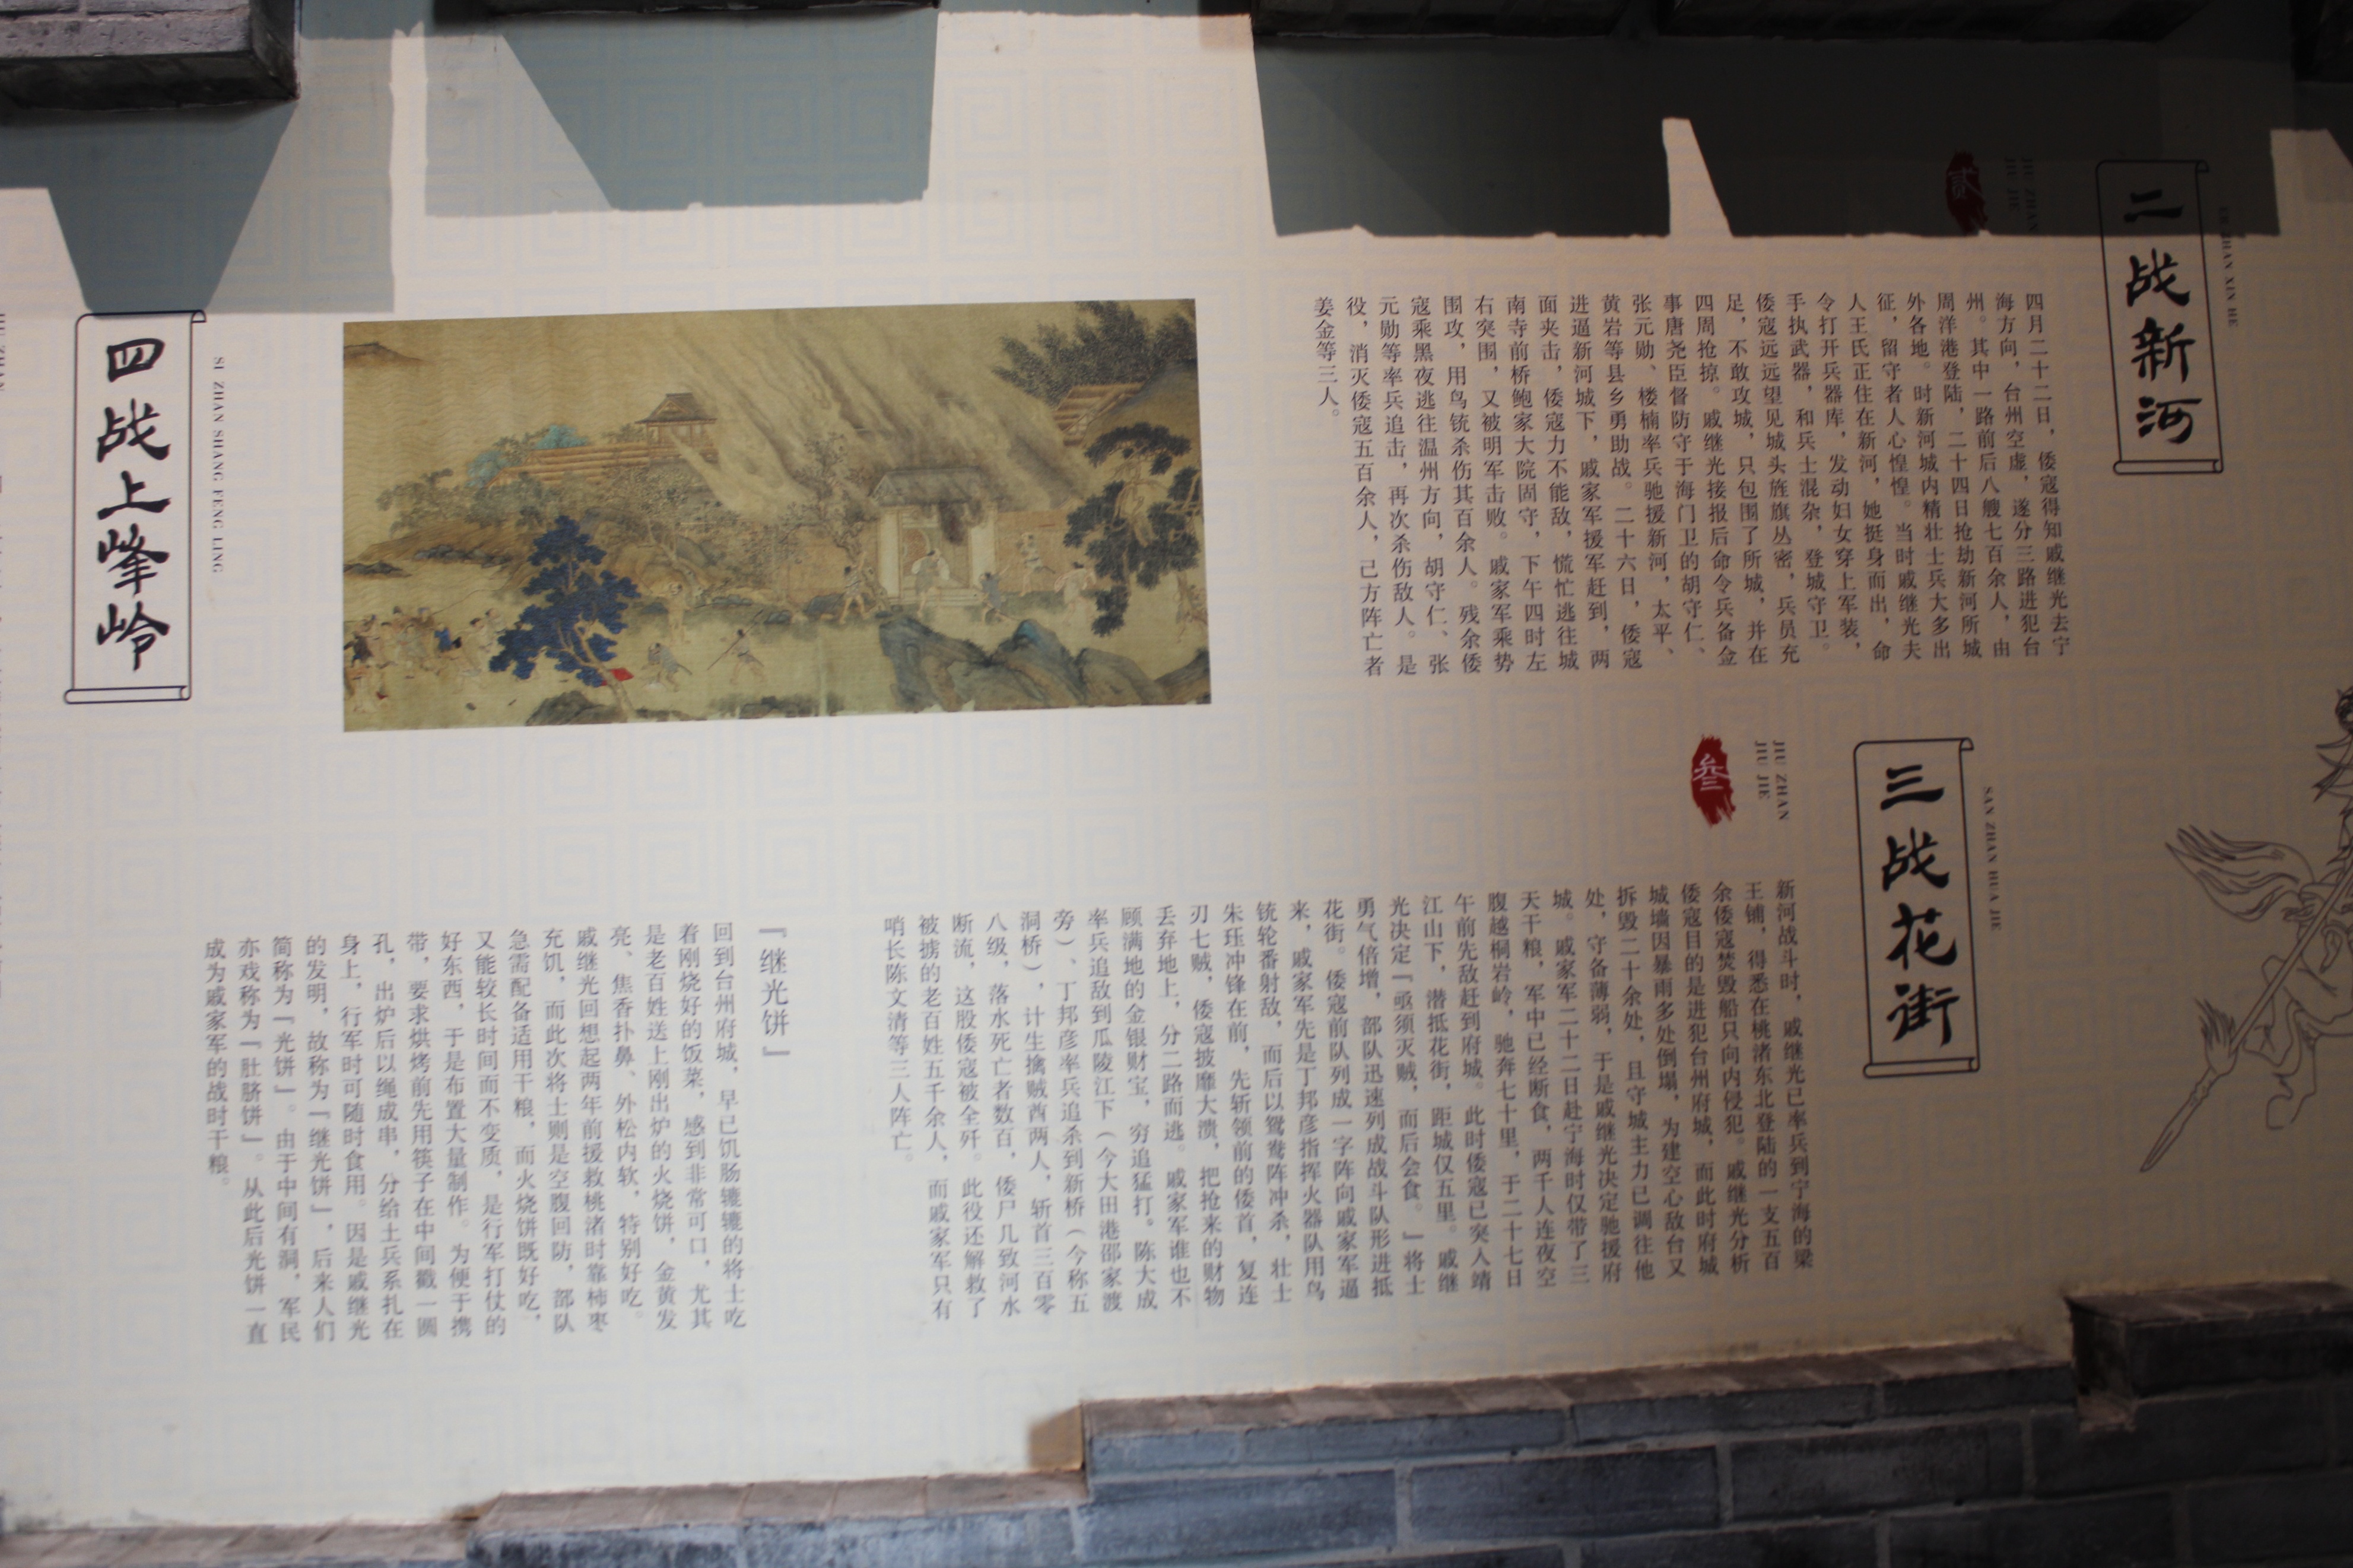 二战新河
ER ZHAN XIN HE
JIU ZHAN
JIU JIE
贰
四月二十二日，倭寇得知戚继光去宁
海方向，台州空虚，遂分三路进犯台
州。其中一路前后八艘七百余人，由
周洋港登陆，二十四日抢劫新河所城
外各地。时新河城内精壮士兵大多出
征，留守者人心惶惶。当时戚继光夫
人王氏正住在新河，她挺身而出，命
令打开兵器库，发动妇女穿上军装，
手执武器，和兵士混杂，登城守卫。
倭寇远远望见城头旌旗丛密，兵员充
足，不敢攻城，只包围了所城，并在
四周抢掠。戚继光接报后命令兵备佥
事唐尧臣督防守于海门卫的胡守仁、
张元勋、楼楠率兵驰援新河，太平、
黄岩等县乡勇助战。二十六日，倭寇
进逼新河城下，戚家军援军赶到，两
面夹击，倭寇力不能敌，慌忙逃往城
南寺前桥鲍家大院固守，下午四时左
右突围，又被明军击败。戚家军乘势
围攻，用鸟铳杀伤其百余人。残余倭
寇乘黑夜逃往温州方向，胡守仁、张
元勋等率兵追击，再次杀伤敌人。是
役，消灭倭寇五百余人，己方阵亡者
姜金等三人。
三战花街
SAN ZHAN HUA JIE
JIU ZHAN
JIU JIE
叁
新河战斗时，戚继光已率兵到宁海的梁
王铺，得悉在桃渚东北登陆的一支五百
余倭寇焚毁船只向内侵犯。戚继光分析
倭寇目的是进犯台州府城，而此时府城
城墙因暴雨多处倒塌，为建空心敌台又
拆毁二十余处，且守城主力已调往他
处，守备薄弱，于是戚继光决定驰援府
城。戚家军二十二日赴宁海时仅带了三
天干粮，军中已经断食，两千人连夜空
腹越桐岩岭，驰奔七十里，于二十七日
午前先敌赶到府城。此时倭寇已突入靖
江山下，潜抵花街，距城仅五里。戚继
光决定『亟须灭贼，而后会食。』将士
勇气倍增，部队迅速列成战斗队形进抵
花街。倭寇前队列成一字阵向戚家军逼
来，戚家军先是丁邦彦指挥火器队用鸟
铳轮番射敌，而后以鸳鸯阵冲杀，壮士
朱珏冲锋在前，先斩领前的倭首，复连
刃七贼，倭寇披靡大溃，把抢来的财物
丢弃地上，分二路而逃。戚家军谁也不
顾满地的金银财宝，穷追猛打。陈大成
率兵追敌到瓜陵江下（今大田港邵家渡
旁）、丁邦彦率兵追杀到新桥（今称五
洞桥），计生擒贼酋两人，斩首三百零
八级，落水死亡者数百，倭尸几致河水
断流，这股倭寇被全歼。此役还解救了
被掳的老百姓五千余人，而戚家军只有
哨长陈文清等三人阵亡。
『继光饼』
回到台州府城，早已饥肠辘辘的将士吃
着刚烧好的饭菜，感到非常可口，尤其
是老百姓送上刚出炉的火烧饼，金黄发
亮、焦香扑鼻、外松内软，特别好吃。
戚继光回想起两年前援救桃渚时靠柿枣
充饥，而此次将士则是空腹回防，部队
急需配备适用干粮，而火烧饼既好吃，
又能较长时间而不变质，是行军打仗的
好东西，于是布置大量制作。为便于携
带，要求烘烤前先用筷子在中间戳一圆
孔，出炉后以绳成串，分给士兵系扎在
身上，行军时可随时食用。因是戚继光
的发明，故称为『继光饼』，后来人们
简称为『光饼』。由于中间有洞，军民
亦戏称为『肚脐饼』。从此后光饼一直
成为戚家军的战时干粮。
四战上峰岭
SI ZHAN SHANG FENG LING